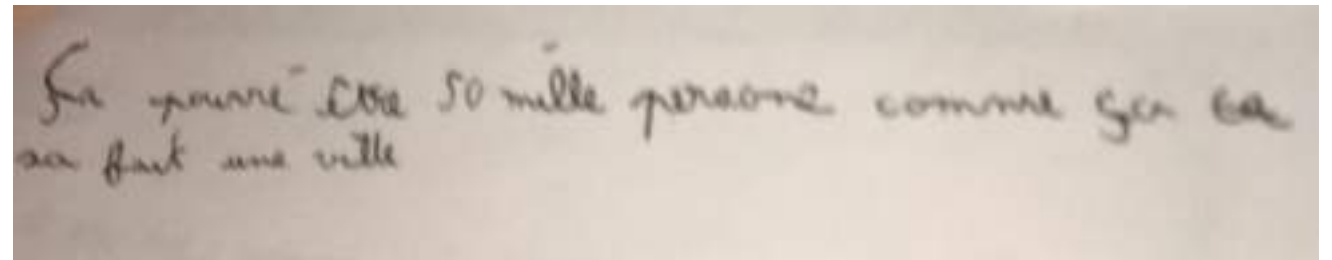 Sa pourré être 50 mille persone comme ça
sa fait une ville